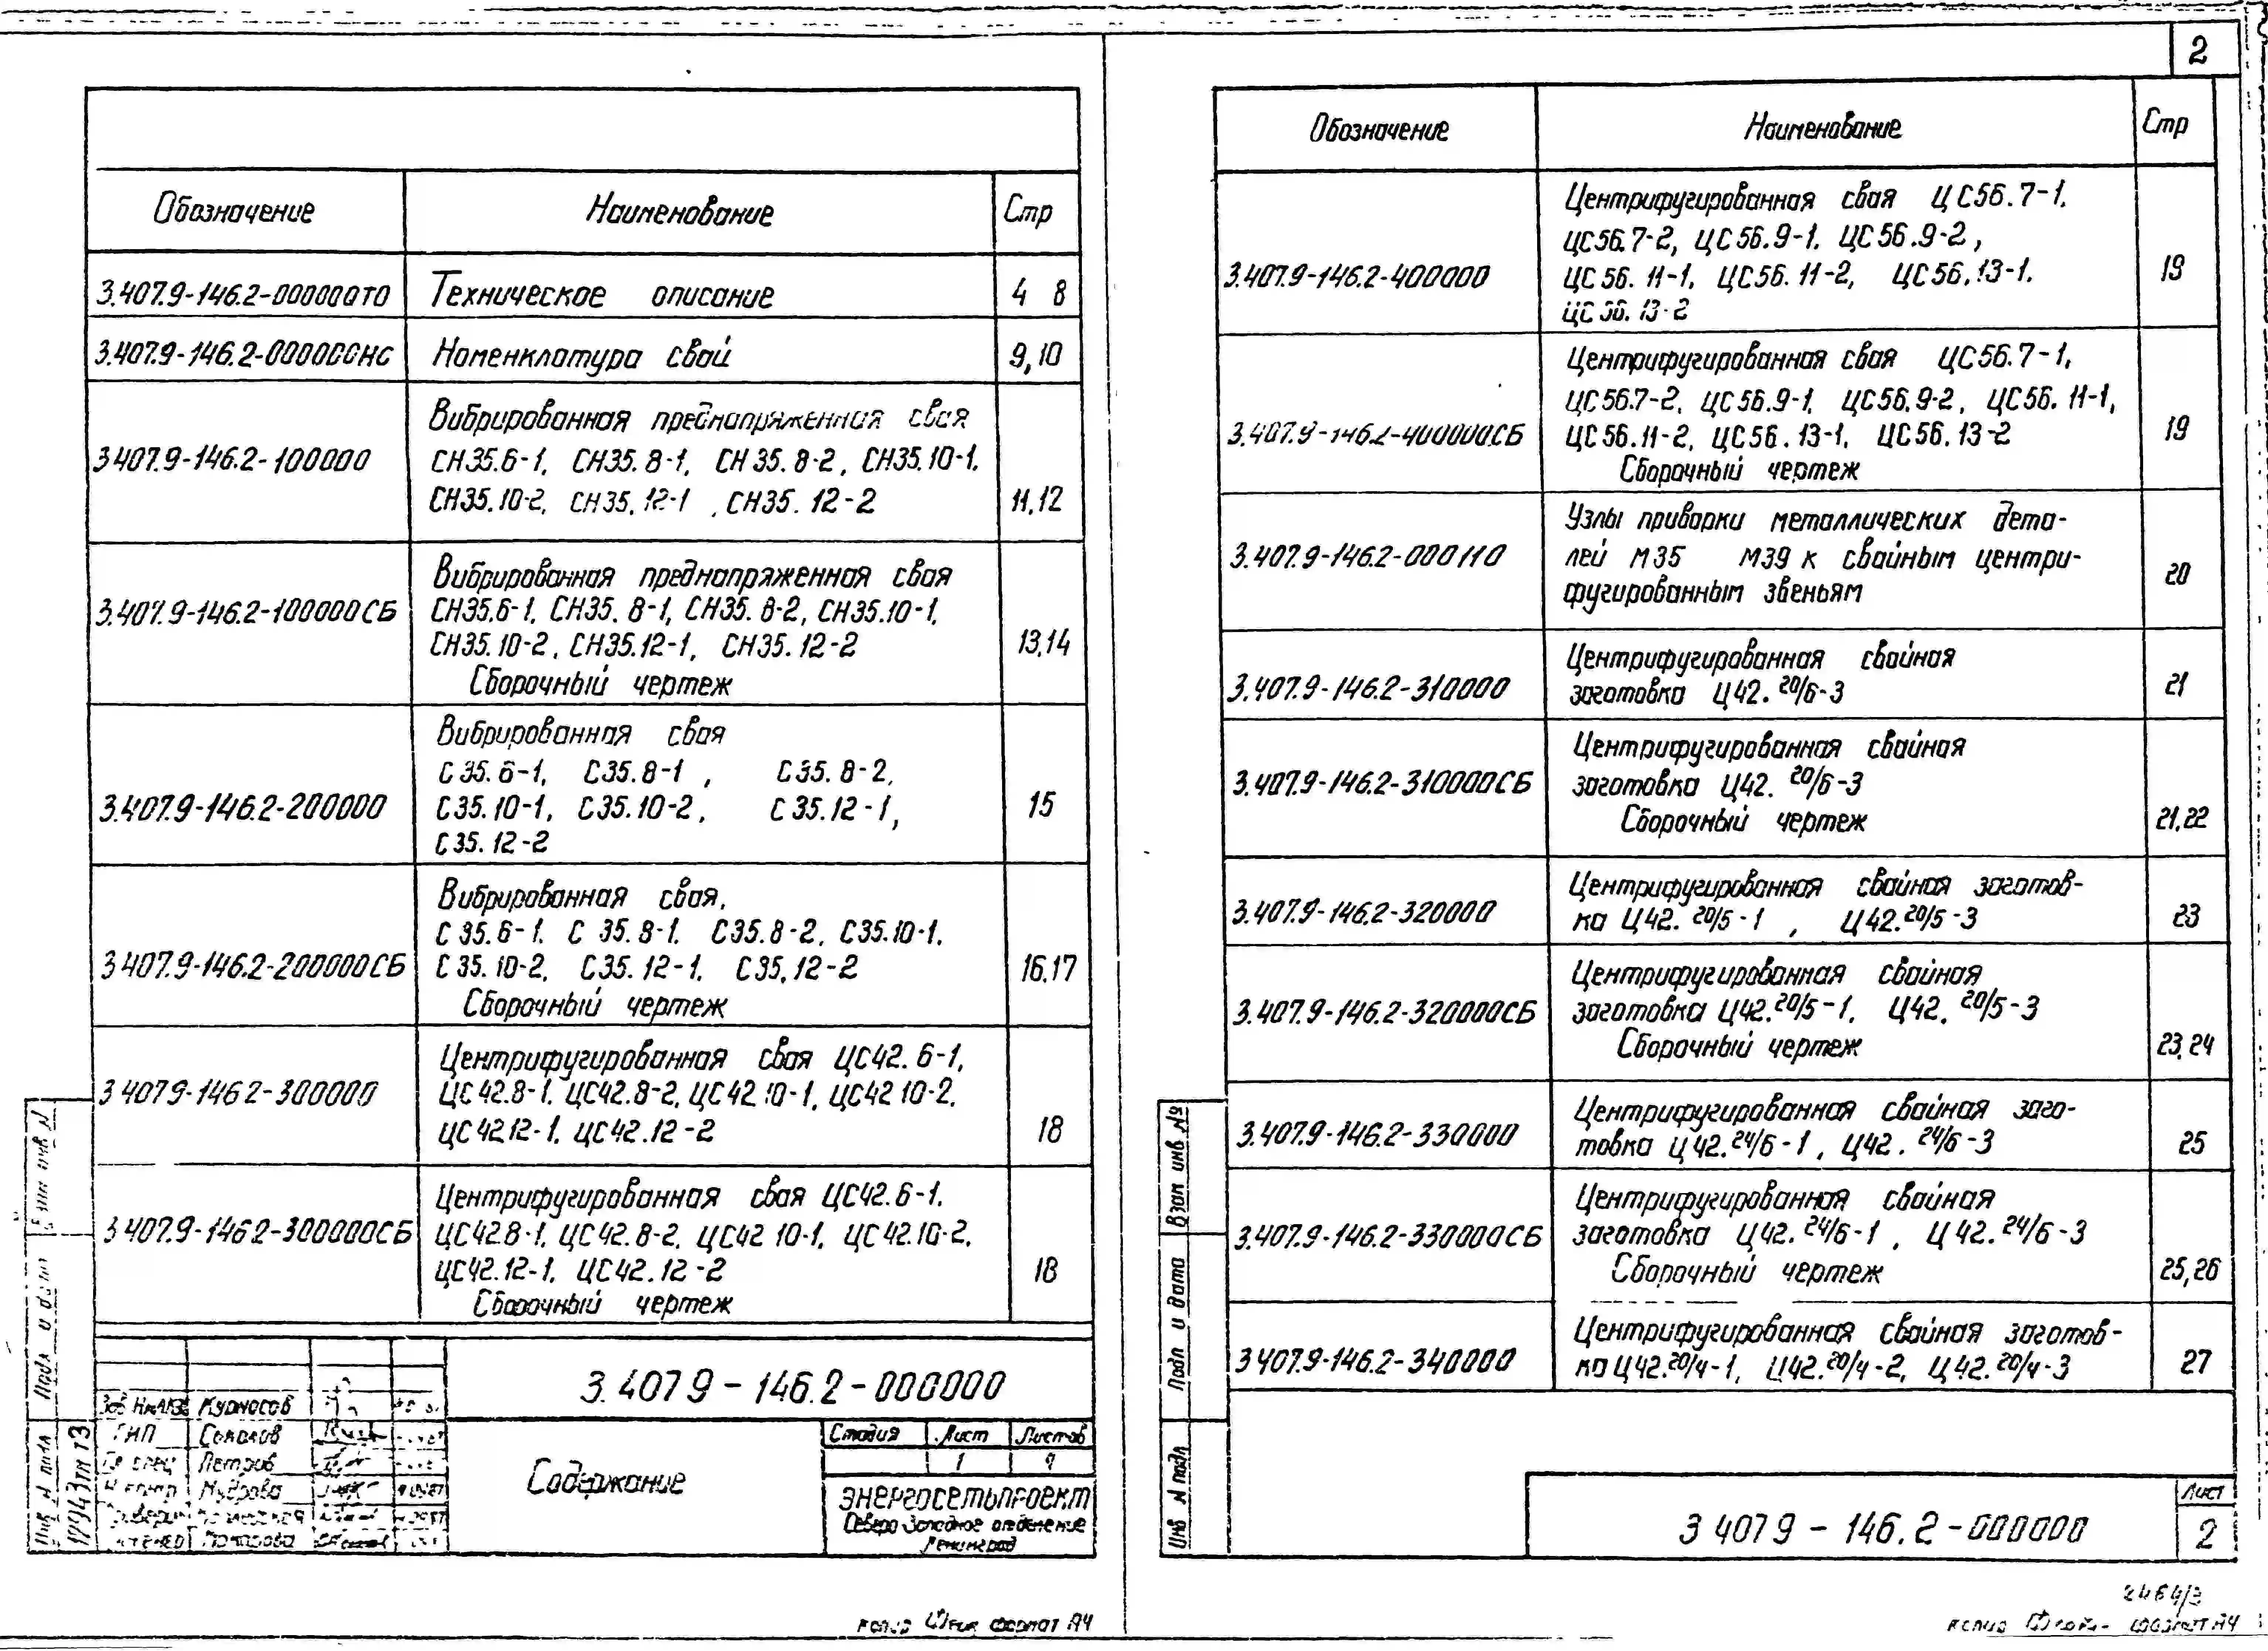 2
Обозначение Наименование Стр
3.407.9-146.2-000000ТО Техническое описание 4 8
3.407.9-146.2-000000НС Номенклатура свай 9,10
3.407.9-146.2-100000 Вибрированная преднапряженная свая
СН35.6-1, СН35.8-1, СН35.8-2, СН35.10-1,
СН35.10-2, СН35.12-1, СН35.12-2 11,12
3.407.9-146.2-100000СБ Вибрированная преднапряженная свая
СН35.6-1, СН35.8-1, СН35.8-2, СН35.10-1,
СН35.10-2, СН35.12-1, СН35.12-2 13,14
Сборочный чертеж
3.407.9-146.2-200000 Вибрированная свая
С35.6-1, С35.8-1, С35.8-2,
С35.10-1, С35.10-2, С35.12-1, 15
С35.12-2
3.407.9-146.2-200000СБ Вибрированная свая,
С35.6-1, С35.8-1, С35.8-2, С35.10-1,
С35.10-2, С35.12-1, С35.12-2 16,17
Сборочный чертеж
3 407 9-146 2-300000 Центрифугированная свая ЦС42.6-1,
ЦС42.8-1, ЦС42.8-2, ЦС42.10-1, ЦС42 10-2,
ЦС42 12-1, ЦС42.12-2 18
3 407.9-146 2-300000СБ Центрифугированная свая ЦС42.6-1,
ЦС42 8-1, ЦС42.8-2, ЦС42 10-1, ЦС42.10-2,
ЦС42.12-1, ЦС42.12-2 18
Сборочный чертеж
3.407 9-146.2-000000
Содержание
Стадия Лист Листов
1
ЭНЕРГОСЕТЬПРОЕКТ
Северо-Западное отделение
Ленинград
Курносов
ГИП Соколов
Петров
Мудрова
17943тм т3
Инв N подл
Подл и дата
формат А4
Обозначение Наименование Стр
3.407.9-146.2-400000 Центрифугированная свая ЦС56.7-1,
ЦС56.7-2, ЦС56.9-1, ЦС56.9-2,
ЦС56.11-1, ЦС56.11-2, ЦС56.13-1, 19
ЦС56.13-2
3.407.9-146.2-400000СБ Центрифугированная свая ЦС56.7-1,
ЦС56.7-2, ЦС56.9-1, ЦС56.9-2, ЦС56.11-1,
ЦС56.11-2, ЦС56.13-1, ЦС56.13-2 19
Сборочный чертеж
3.407.9-146.2-000110 Узлы приварки металлических дета-
лей М35 М39 к свайным центри-
фугированным звеньям 20
3.407.9-146.2-310000 Центрифугированная свайная
заготовка Ц42.20/6-3 21
3.407.9-146.2-310000СБ Центрифугированная свайная
заготовка Ц42.20/6-3
Сборочный чертеж 21,22
3.407.9-146.2-320000 Центрифугированная свайная заготов-
ка Ц42.20/5-1, Ц42.20/5-3 23
3.407.9-146.2-320000СБ Центрифугированная свайная
заготовка Ц42.20/5-1, Ц42.20/5-3
Сборочный чертеж 23,24
3.407.9-146.2-330000 Центрифугированная свайная заго-
товка Ц42.24/6-1, Ц42.24/6-3 25
3.407.9-146.2-330000СБ Центрифугированная свайная
заготовка Ц42.24/6-1, Ц42.24/6-3
Сборочный чертеж 25,26
3 407.9-146.2-340000 Центрифугированная свайная заготов-
ка Ц42.20/4-1, Ц42.20/4-2, Ц42.20/4-3 27
Взам инв №
Подп и дата
Инв N подл
3 407 9-146.2-000000
Лист
2
2464/3
формат А4